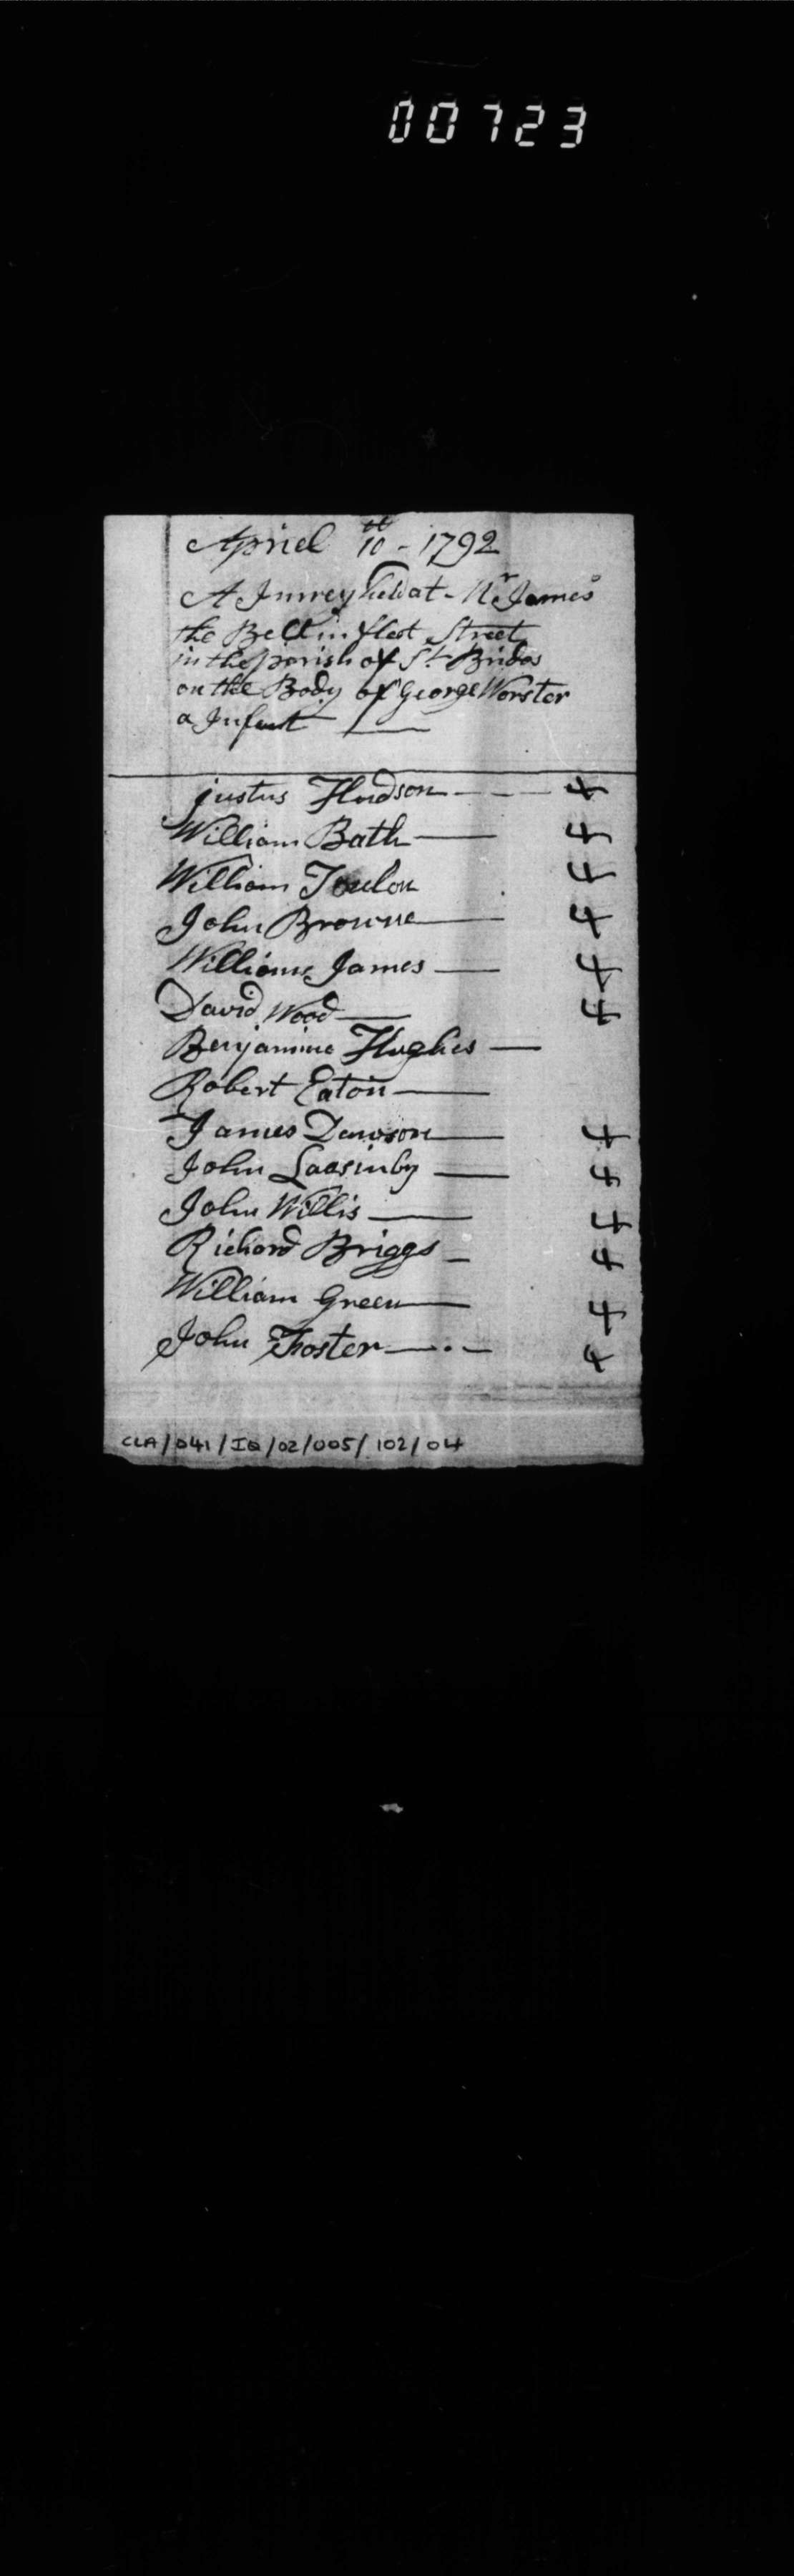 00723
Apriel 10th - 1792
A Jurrey held at - Mr James
the Bell in fleet Street
in the parish of St Brides
on the Body of George Worster
a Infant
justus Hudson - - - 4
William Bath — 4
William Toulon 4
John Browne — 4
William James — 4
David Wood — 4
Benjamine Hughes —
Robert Eaton —
James Dawson — 4
John Laasinby — 4
John Willis — 4
Richard Briggs - 4
William Green — 4
John Foster — . - 4
CLA/041/IQ/02/005/102/04